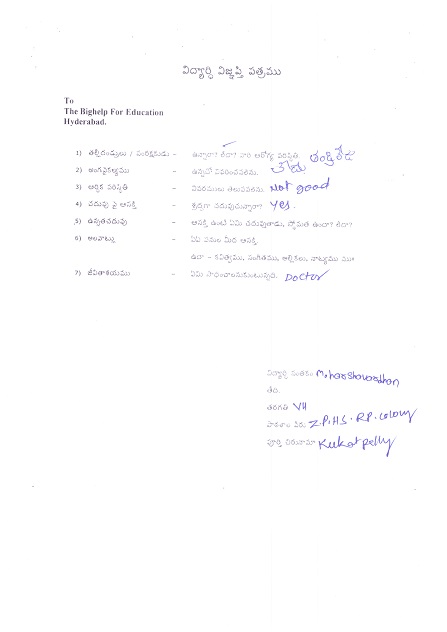 విద్యార్థి విజ్ఞప్తి పత్రము
To
The Bighelp For Education
Hyderabad.
1) తల్లిదండ్రులు / సంరక్షకుడు – ఉన్నారా? లేరా? వారి ఆరోగ్య పరిస్థితి తండ్రి లేడు
2) అంగవైకల్యము – ఉన్నచో వివరించవలెను. లేదు
3) ఆర్థిక పరిస్థితి – వివరములు తెలుపవలెను. Not good
4) చదువు పై ఆసక్తి – శ్రద్ధగా చదువుచున్నారా? Yes.
5) ఉన్నతచదువు – ఆసక్తి ఉంటే ఏమి చదువుతాడు, స్తోమత ఉందా? లేదా?
6) అలవాట్లు – ఏఏ పనుల మీద ఆసక్తి.
ఉదా – కవిత్వము, సంగీతము, అల్లికలు, నాట్యము
7) జీవితాశయము – ఏమి సాధించాలనుకుంటున్నది. Doctor
విద్యార్థి సంతకం M. harshavardhan
తేది.
తరగతి VII
పాఠశాల పేరు Z.P.H.S. R.P. colony
పూర్తి చిరునామా Kukatpelly